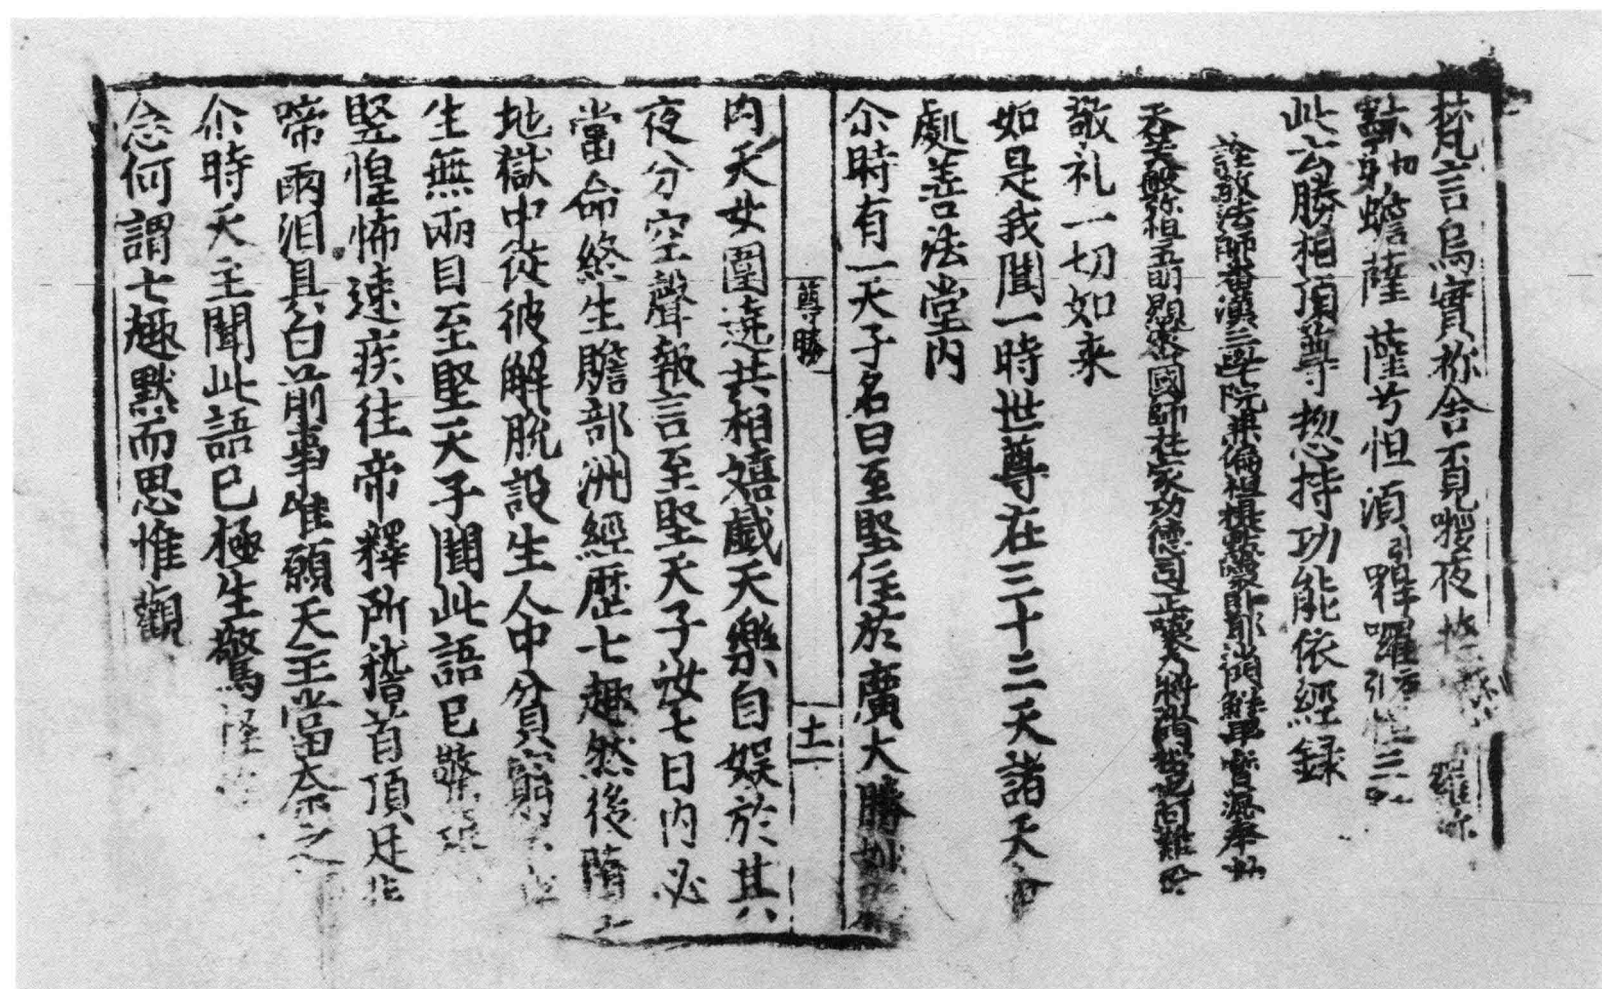 梵言烏實祢舍不見
黙切身蟾薩薩兮怛湏引哩囉
此云勝相頂尊揔持功能依經録
詮教法師番漢三學院兼偏袒提點嚷卧耶沙門鮮卑寳源奉
天竺大般弥怛五明顯密國師在家功德司正嚷乃將沙門
敬礼一切如来
如是我聞一時世尊在三十三天諸天
處善法堂內
尒時有一天子名曰至堅住於廣大勝
尊勝
十一
內天女圍遶共相嬉戲天樂自娱於其
夜分空聲報言至堅天子汝七日內必
當命終生贍部洲經歷七趣然後墮
地獄中從彼解脫設生人中貧窮
生無兩目至堅天子聞此語已驚
堅惶怖速疾往帝釋所稽首頂足
啼雨泪具白前事唯願天王當奈之
尒時天主聞此語已極生驚怪
念何謂七趣默而思惟觀